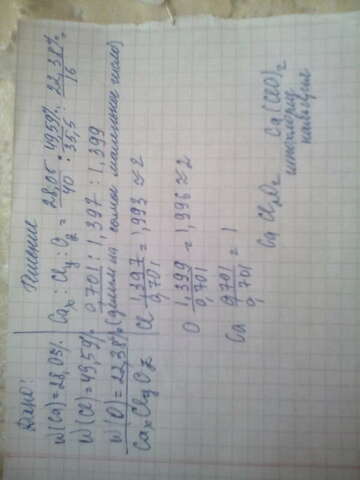 Дано:
W(Ca)=28,05%
W(Cl)=49,59%
W(O)=22,38%
CaxClyOz
Решение
Cax : Cly : Oz = 28,05/40 : 49,59%/35,5 : 22,38%/16
0,701 : 1,397 : 1,399
(делим на самое маленькое число)
Cl 1,397/0,701 = 1,993 ≈ 2
O 1,399/0,701 = 1,996 ≈ 2
Ca 0,701/0,701 = 1
CaCl2O2 Ca(ClO)2
кальция